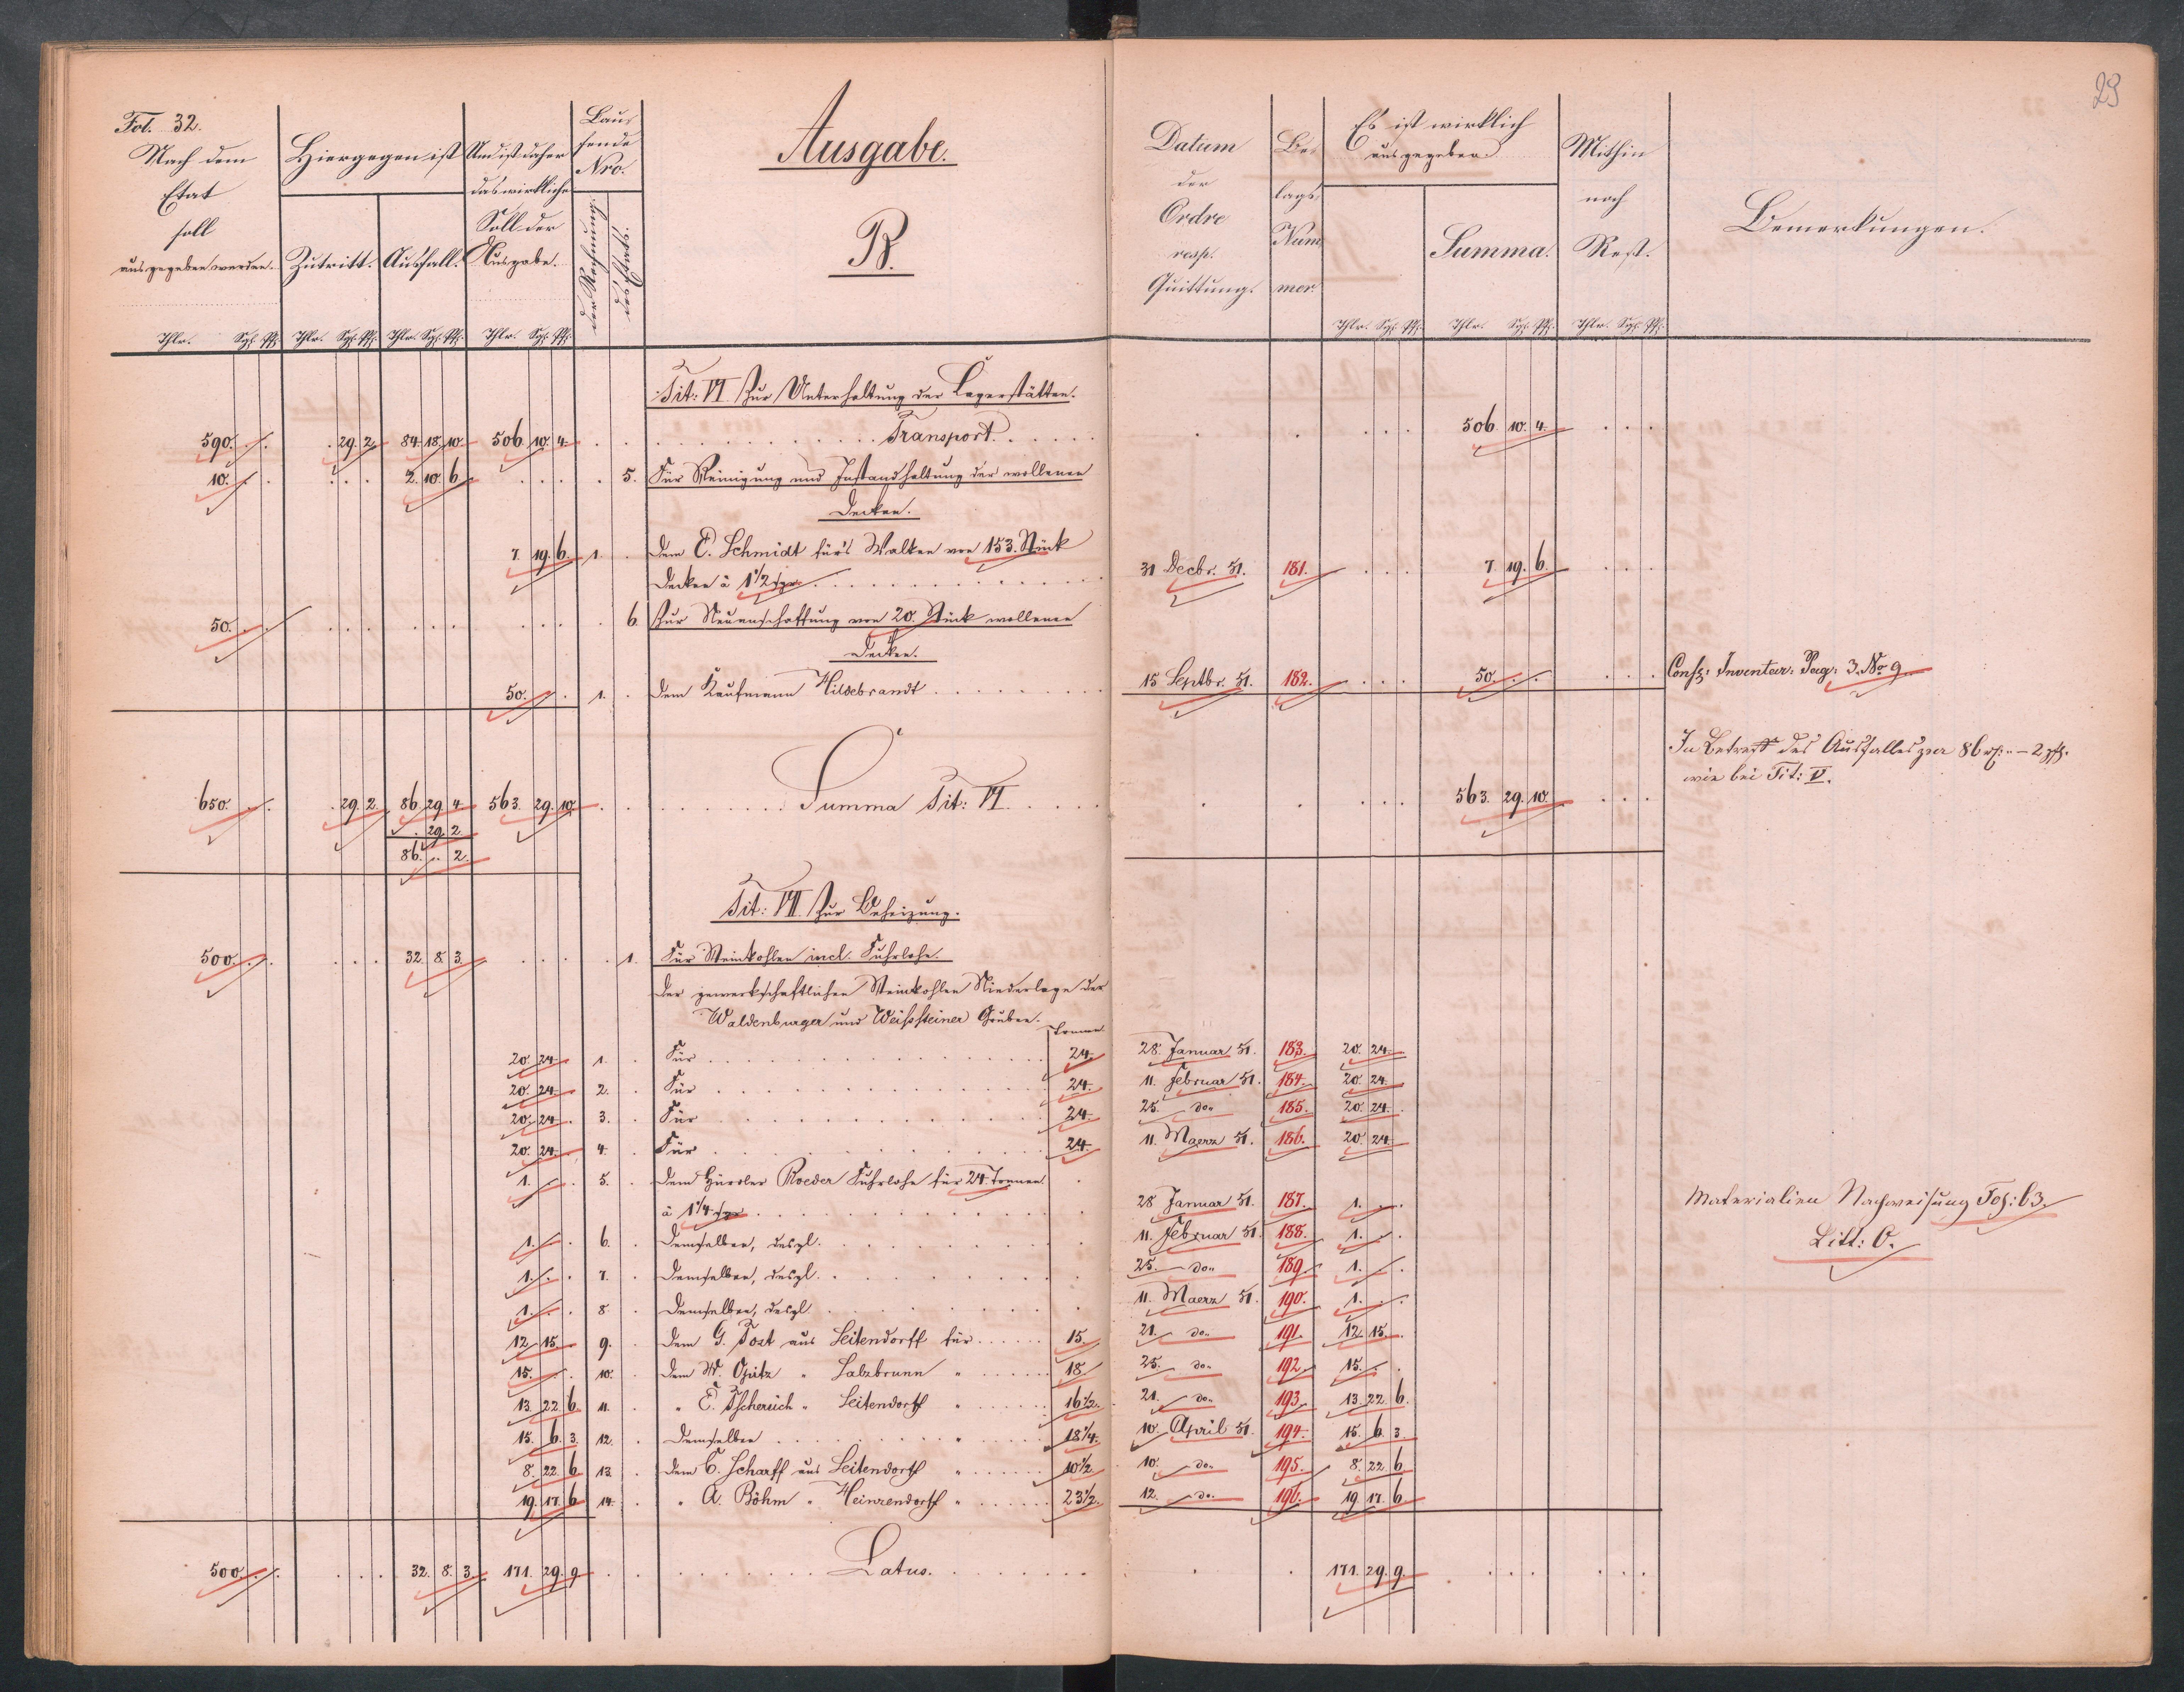 Fol. 32.
Nach dem
Etat
soll
ausgegeben werden.
Thlr. Sgl. Pf.
Hiergegen ist
Zutritt.
Thlr. Sgl. Pf.
Ausfall.
Thlr. Sgl. Pf.
Und ist daher
das wirkliche
Soll der
Ausgabe.
Thlr. Sgl. Pf.
Laufende
Nro.
der Rechnung.
des Etats.
Ausgabe.
B.
Datum
der
Ordre
resp.
Quittung.
Belags
Nummer.
Es ist wirklich
ausgegeben.
Summa.
Thlr. Sgl. Pf. Thlr. Sgl. Pf.
Mithin
noch
Rest.
Thlr. Sgl. Pf.
Bemerkungen.
29
Tit: VI. Zur Unterhaltung der Lagerstätten.
590. . . . 29. 2. 84. 18. 10. 506. 10. 4. Transport. 506. 10. 4.
10. . . . . . 2. 10. 6. 5. Für Reinigung und Instandhaltung der wollenen
Decken.
7. 19. 6. 1. Dem E. Schmidt für's Walken von 153. Stück
Decken à 1 1/2 sgr. 31 Decbr. 51. 181. 7. 19. 6.
50. . . 6. Zur Neuanschaffung von 20. Stück wollenen
Decken.
50. . . 1. Dem Kaufmann Hildebrandt 15 Septbr. 51. 182. 50. . . Conf: Inventar: Pag: 3. No. 9.
In Betreff des Ausfalles per 86 rf: " - 2 pf:
wie bei Tit: V.
650. . . . 29. 2. 86. 29. 4. 563. 29. 10. Summa Tit: VI. 563. 29. 10.
. 29. 2
86. " 2.
Tit: VII. Zur Beheizung.
500. . . 32. 8. 3. 1. Für Steinkohlen incl. Fuhrlohn.
Der gewerkschaftlichen Steinkohlen Niederlage der
Waldenburger und Weißsteiner Gruben. Tonnen.
20. 24. 1. Für 24. 28. Januar 51. 183. 20. 24.
20. 24. 2. Für 24. 11. Februar 51. 184. 20. 24.
20. 24. 3. Für 24. 25. do. 185. 20. 24.
20. 24. 4. Für 24. 11. Maerz 51. 186. 20. 24.
1. . . 5. Dem Roeder Fuhrlohn für 24. Tonnen
à 1 1/4 sgr. 28 Januar 51. 187. 1. . . Materialien Nachweisung Fol: 63.
Litt: O.
1. . . 6. Demselben, desgl. 11. Februar 51. 188. 1. . .
1. . . 7. Demselben, desgl. 25. do. 189. 1. . .
1. . . 8. Demselben, desgl. 11. Maerz 51. 190. 1. . .
12. 15. 9. Dem G. Tost aus Seitendorff für 15. 21. do. 191. 12. 15.
15. . . 10. Dem W. Opitz " Salzbrunn " 18. 25. do. 192. 15. . .
13. 22. 6. 11. " E. Tschersich " Seitendorff " 16 1/2. 21. do. 193. 13. 22. 6.
15. 6. 3. 12. Demselben " 18 1/4. 10. April 51. 194. 15. 6. 3.
8. 22. 6. 13. Dem C. Scharff aus Seitendorff " 10 1/2. 10. do. 195. 8. 22. 6.
19. 17. 6. 14. " A. Böhm " Heinzendorff " 23 1/2. 12. do. 196. 19. 17. 6.
500. . . 32. 8. 3. 171. 29. 9. Latus. 171. 29. 9.